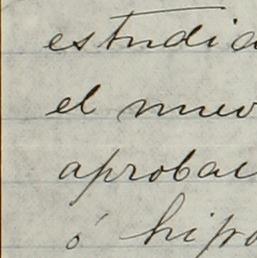 estudia
el nuev
aprobac
ó hipo